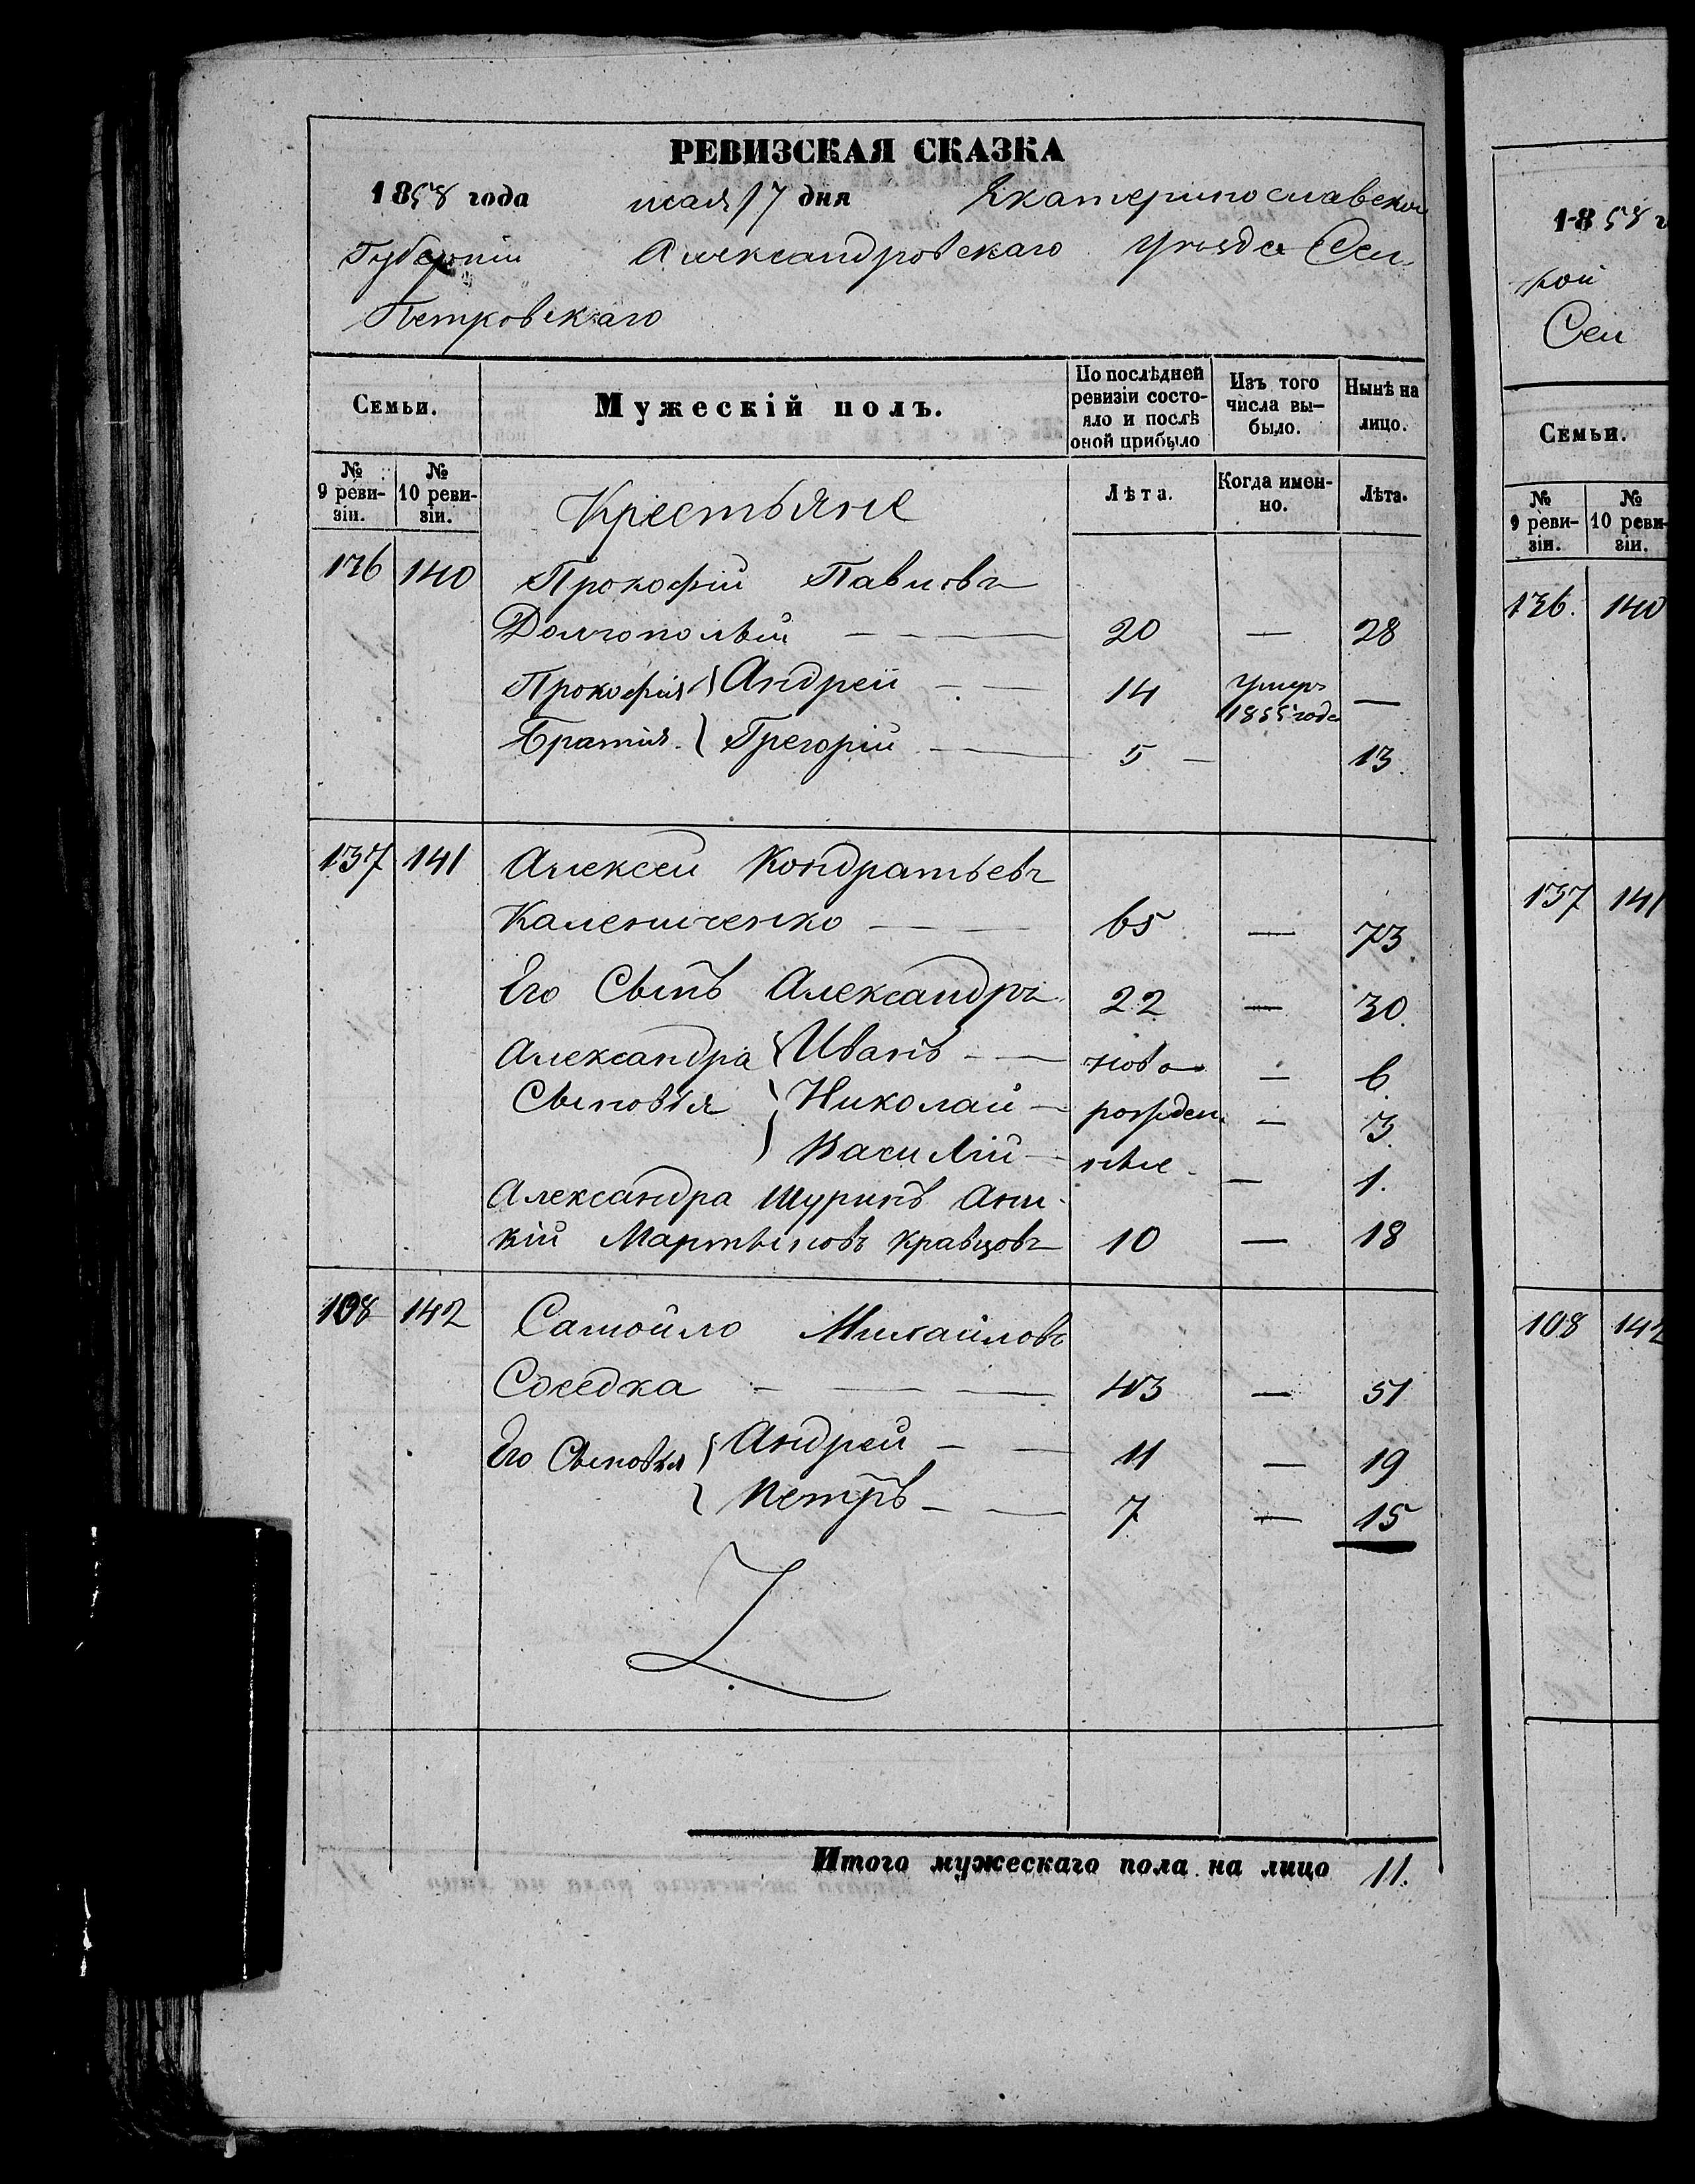 РЕВИЗСКАЯ СКАЗКА
1858 года мая 17 дня Екатеринославской
Губерніи Александровскаго уѣзда Сел.
Петровскаго
Семьи.
Мужескій полъ.
По послѣдней ревизіи состояло и послѣ оной прибыло
Изъ того числа выбыло.
Нынѣ на лицо.
№ 9 ревизіи.
№ 10 ревизіи.
Крестьяне
Лѣта.
Когда именно.
Лѣта.
136 140 Прокофій Павловъ
Долгополый — 20 — 28
Прокофія Андрей — 14 умеръ 1855 года —
Братія Грегорій — 5 — 13.
137 141 Алексей Кондратьевъ
Калениченко — 65 — 73.
Его Сынъ Александръ 22 — 30.
Александра Иванъ — ново — 6.
Сыновья Николай — рожден — 3.
Василій — ные — 1.
Александра Шуринъ Ани-
кій Мартыновъ Кравцовъ 10 — 18
108 142 Самойло Михайловъ
Соседка — 43 — 51
Его Сыновья Андрей — 11 — 19
Петръ — 7 — 15
Итого мужескаго пола на лицо 11.
1858 г
кой
Сел
Семьи.
№ 9 ревизіи.
№ 10 ревизіи.
136. 140
137 141
108 142